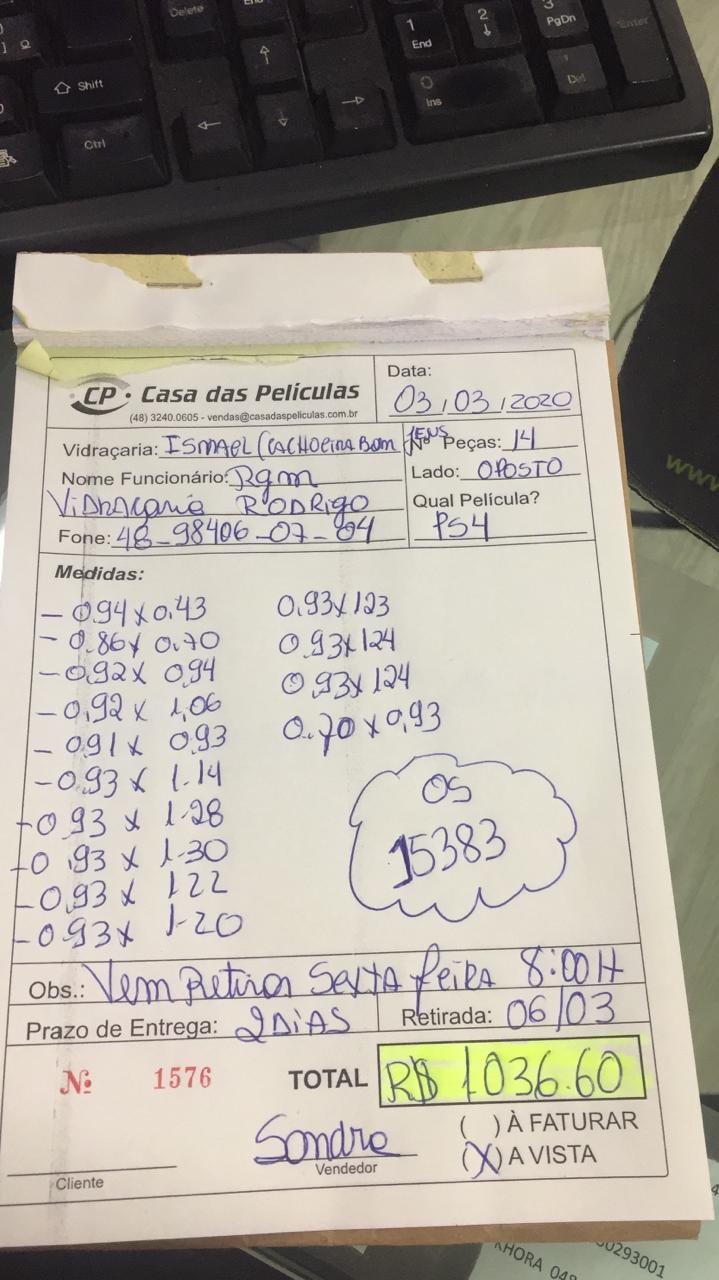 Delete
End
1
End
2
3
PgDn
Enter
Shift
Ctrl
Ins
Del
www
CP · Casa das Películas
(48) 3240.0605 - vendas@casadaspeliculas.com.br
Data:
03/03/2020
Vidraçaria: ISMAEL (CACHOEIRA BOM JESUS
Nº Peças: 14
Nome Funcionário: Rgm
Lado: OPOSTO
VIDRAÇARIA RODRIGO
Qual Película?
Fone: 48-98406-07-04
PS4
Medidas:
- 0.94 x 0.43
- 0.86 x 0.70
- 0,92 x 0,94
- 0,92 x 1,06
- 0,91 x 0,93
- 0,93 x 1.14
- 0,93 x 1.28
- 0,93 x 1.30
- 0,93 x 1.22
- 0.93 x 1.20
0.93 x 123
0.93 x 124
0,93 x 124
0.70 x 0,93
OS
15383
Obs.: Vem Retirar SEXTA feira 8:00H
Prazo de Entrega: 2 DIAS
Retirada: 06/03
Nº 1576
TOTAL R$ 1.036.60
( ) À FATURAR
(X) A VISTA
Sandra
Vendedor
Cliente
00293001